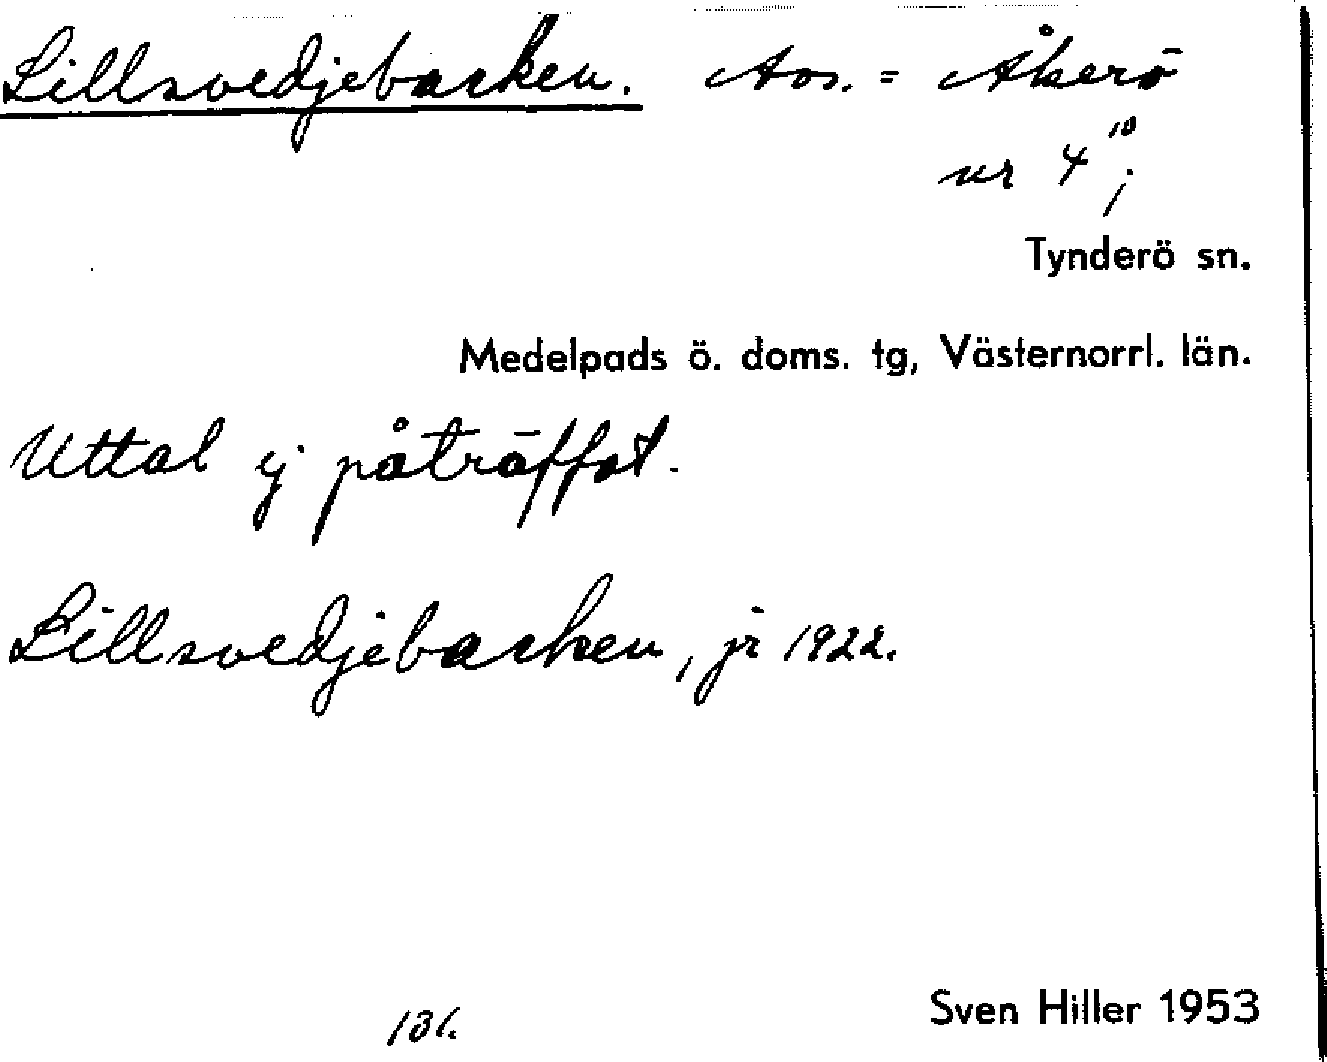 Lillsvedjebacken. Avs. = Åkerö
nr 4¹⁰;
Tynderö sn.
Medelpads ö. doms. tg, Västernorrl. län.
Uttal ej påträffat.
Lillsvedjebacken, jr 1922.
Sven Hiller 1953